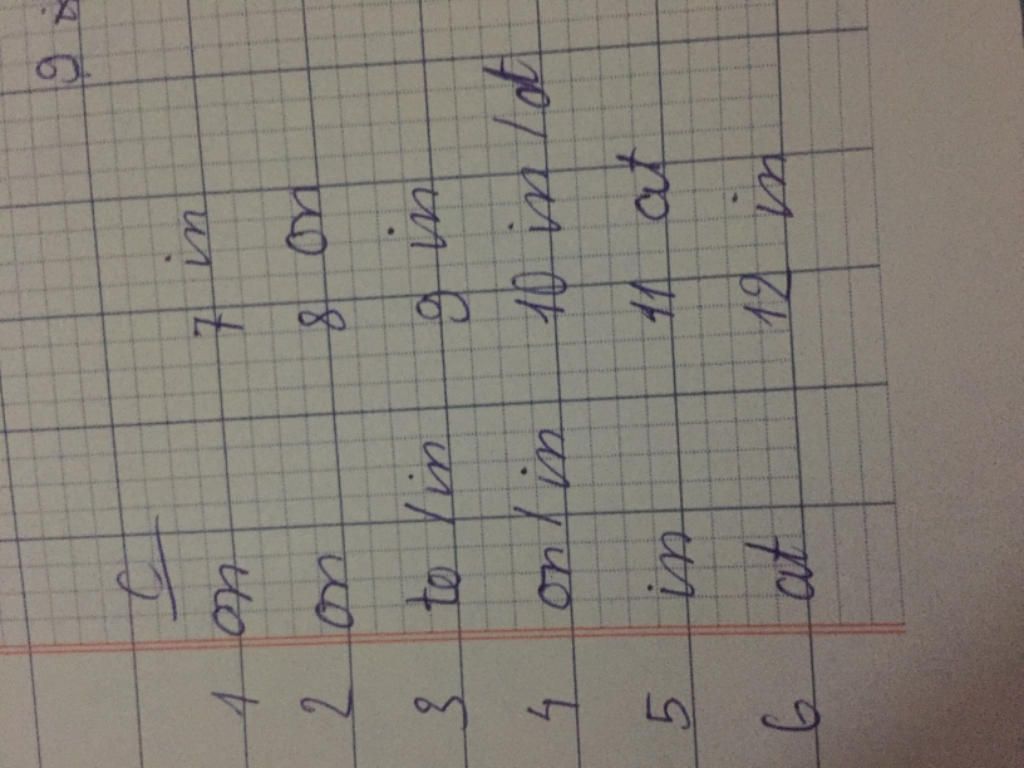 C
1 on 7 in
2 on 8 on
3 to / in 9 in
4 on / in 10 in / at
5 in 11 at
6 at 12 in